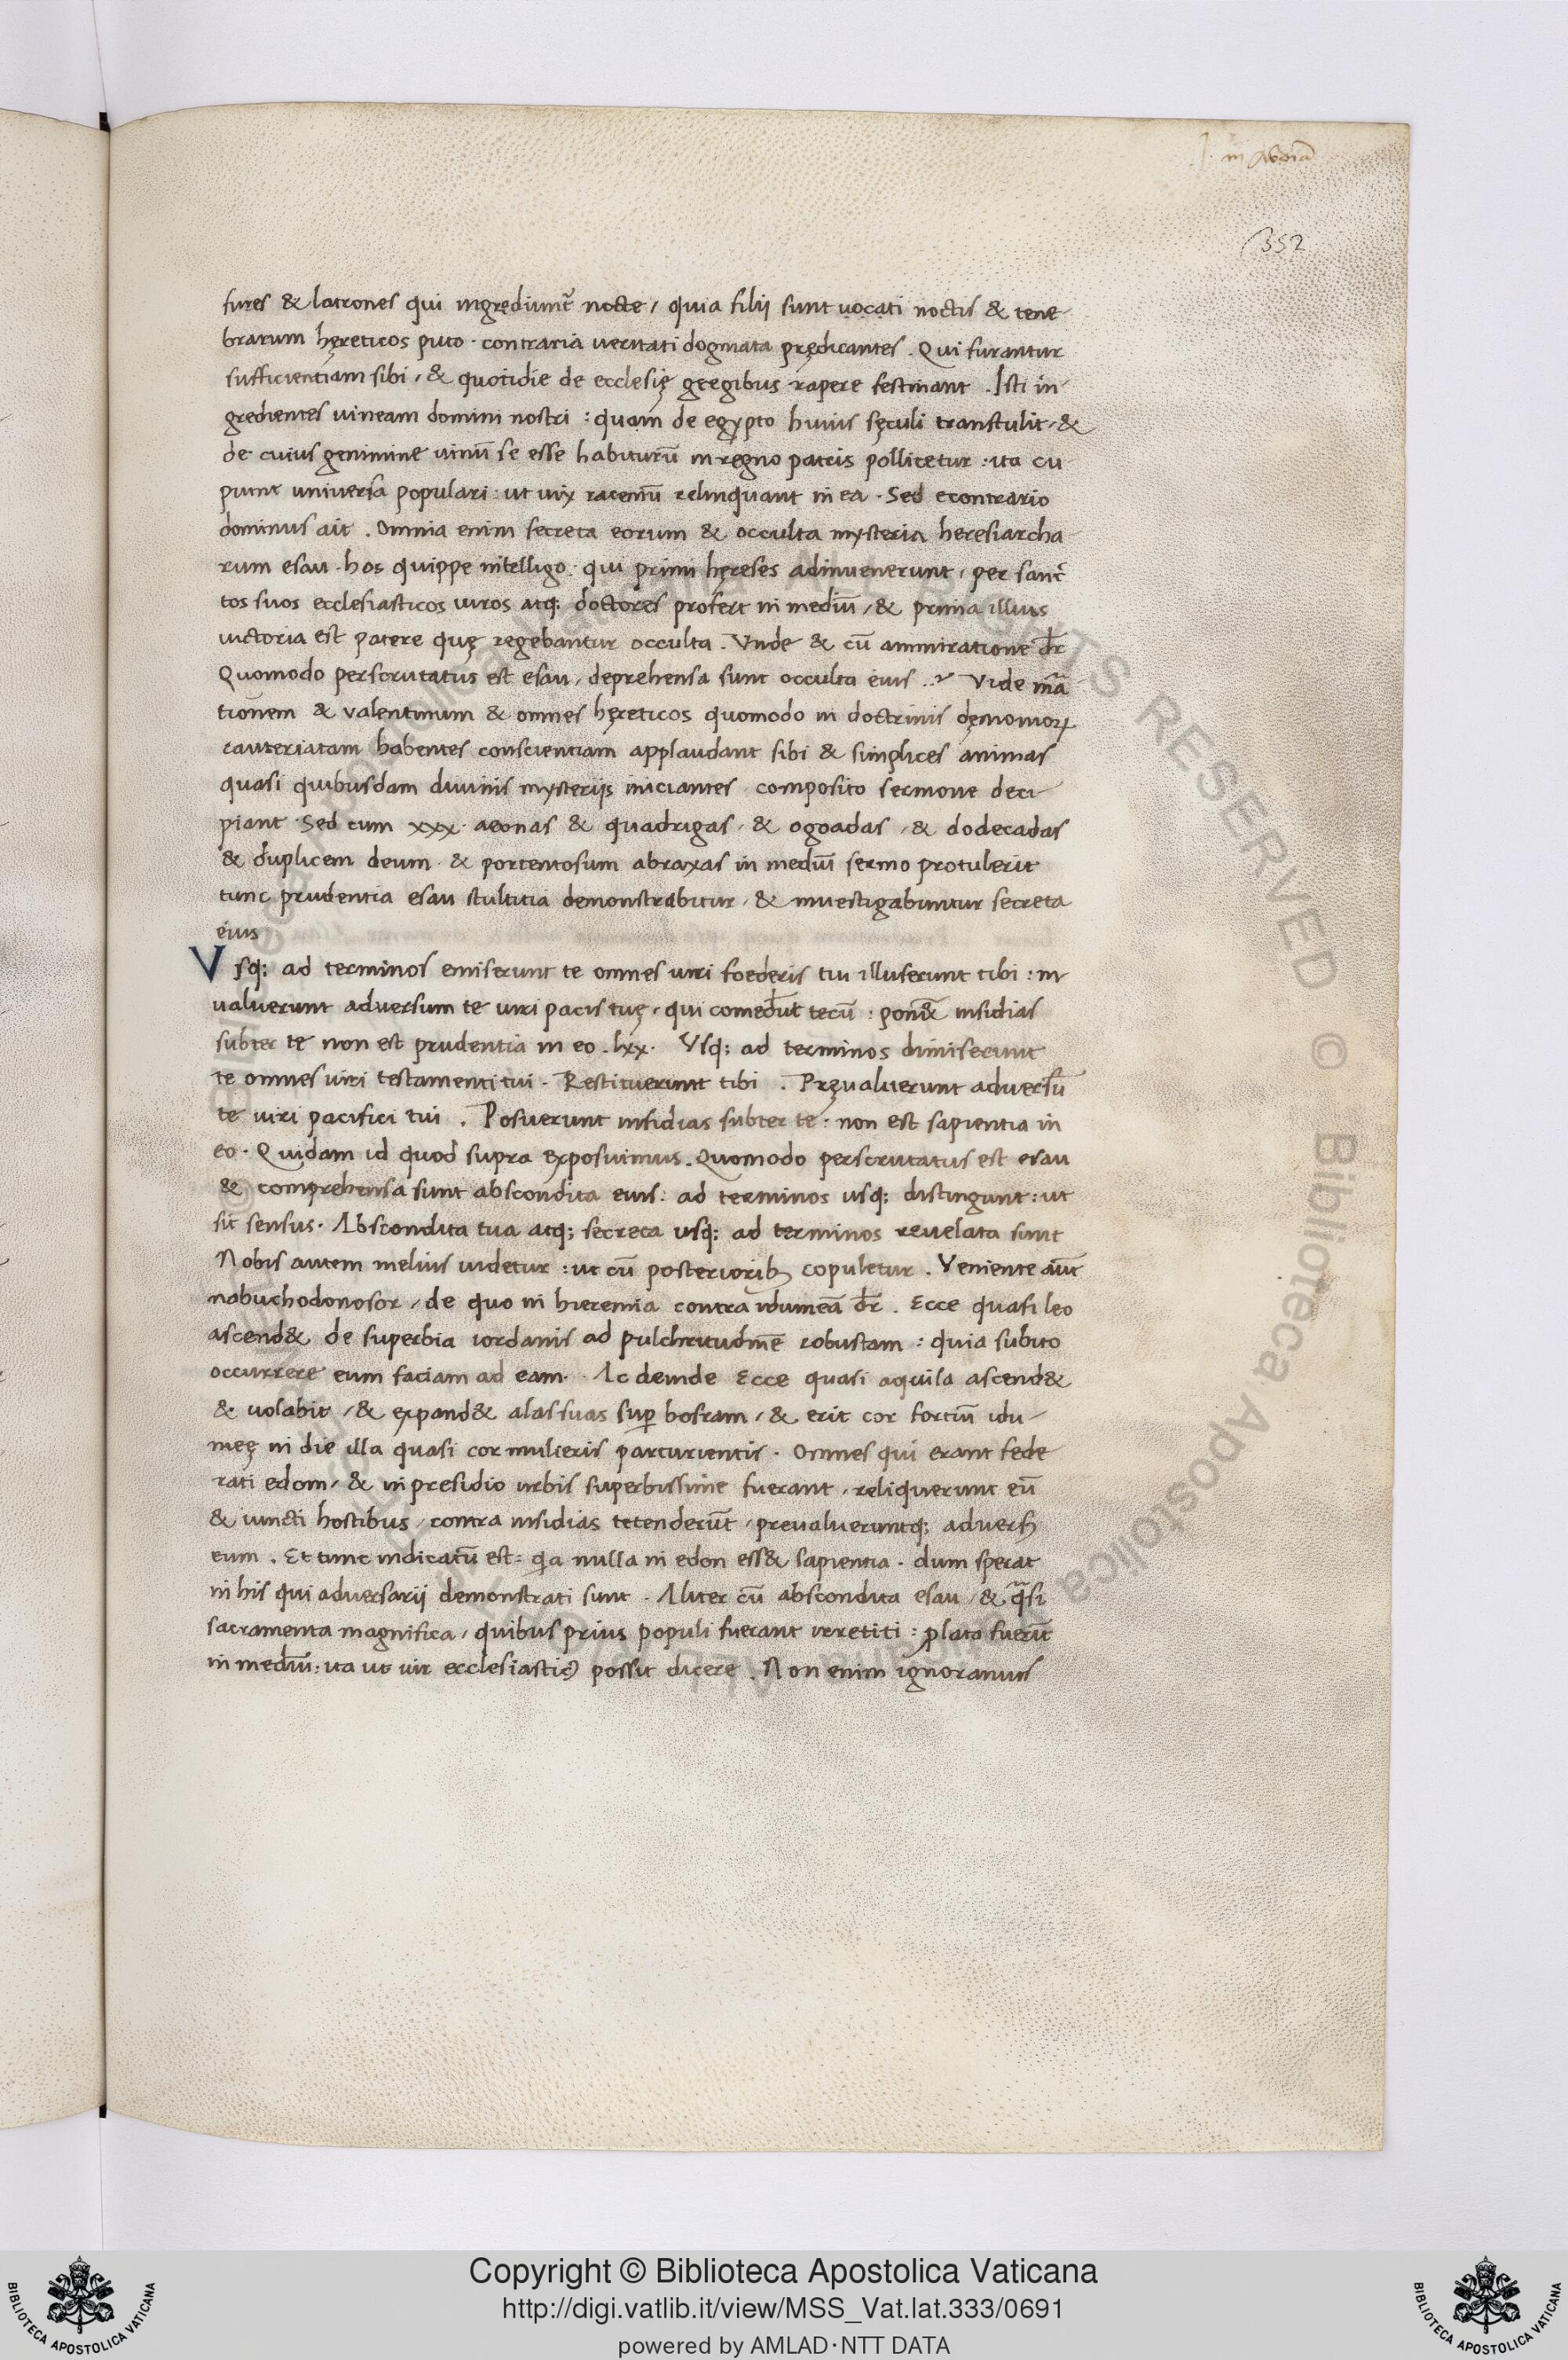 J. in Abdiã
352
fures & latrones qui ingrediunt᷑ nocte, quia filij sunt uocati noctis & tene
brarum hęreticos puto · contraria ueritati dogmata prędicantes . Qui furantur
sufficientiam sibi, & quotidie de ecclesię gregibus rapere festinant . Isti in
gredientes uineam domini nostri : quam de egypto huius sęculi transtulit, &
de cuius genimine uinũ se esse habiturũ in regno patris pollicetur : ita cu
piunt universa populari : ut uix racemũ relinquant in ea . Sed econtrario
dominus ait . Omnia enim secreta eorum & occulta mysteria heresiarcha
rum esau . hos quippe intelligo : qui primi hęreses adinvenerunt, per sanc
tos suos ecclesiasticos uiros atq; doctores profert in mediũ, & prima illius
uictoria est patere quę regebantur occulta . Vnde & cũ ammiratione dr̃
Quomodo perscrutatus est esau, deprehensa sunt occulta eius .. Vide mã
tionem & valentinum & omnes hęreticos quomodo in doctrinis dęmonioꝝ
cauteriatam habentes conscientiam applaudant sibi & simplices animas
quasi quibusdam diuinis mysterijs iniciantes composito sermone deci
piant . Sed cum xxx . aeonas & quadrigas, & ogoadas, & dodecadas
& duplicem deum . & portentosum abraxas in mediũ sermo protulerit
tunc prudentia esau stultitia demonstrabitur, & inuestigabuntur secreta
eius
Vsq; ad terminos emiserunt te omnes uiri foederis tui illuserunt tibi : in
valuerunt adversum te uiri pacis tuę, qui comedũt tecũ : ponẽt insidias
subter te non est prudentia in eo . lxx . Vsq; ad terminos dimiserunt
te omnes uiri testamenti tui . Restituerunt tibi . Pręvaluerunt adversũ
te uiri pacifici tui . Posuerunt insidias subter te : non est sapientia in
eo . Quidam id quod supra exposuimus . Quomodo perscrutatus est esau
& comprehensa sunt abscondita eius : ad terminos usq; distingunt : ut
sit sensus . Abscondita tua atq; secreta usq; ad terminos revelata sunt
Nobis autem melius uidetur : ut cũ posteriorib; copuletur . Veniente aũt
nabuchodonosor, de quo in hieremia contra idumeã dr̃ . Ecce quasi leo
ascend& de superbia iordanis ad pulchritudinẽ robustam : quia subito
occurrere eum faciam ad eam . Ac deinde Ecce quasi aquila ascend&
& uolabit, & expand& alas suas suꝑ bosram, & erit cor fortiũ idu
meę in die illa quasi cor mulieris parturientis . Omnes qui erant fede
rati edom, & in presidio urbis superbissime fuerant, reliquerunt eũ
& iuncti hostibus, contra insidias tetenderũt, prevalueruntq; advers;
eum . Et tunc indicatũ est : q̃a nulla in edon ess& sapientia . dum sperat
in his qui adversarij demonstrati sunt . Aliter cũ abscondita esau, & q̃si
sacramenta magnifica, quibus prius populi fuerant irretiti : ꝓlata fuerũt
in mediũ : ita ut uir ecclesiasticꝰ possit dicere . Non enim ignoramus
Copyright © Biblioteca Apostolica Vaticana
http://digi.vatlib.it/view/MSS_Vat.lat.333/0691
powered by AMLAD·NTT DATA
BIBLIOTECA APOSTOLICA VATICANA
BIBLIOTECA APOSTOLICA VATICANA